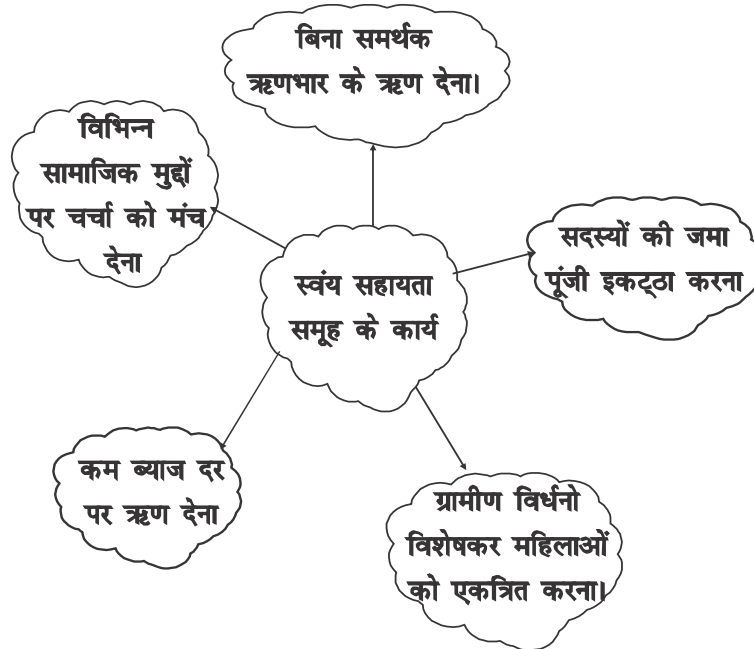 बिना समर्थक
ऋणभार के ऋण देना।
विभिन्न
सामाजिक मुद्दों
पर चर्चा को मंच
देना
सदस्यों की जमा
पूंजी इकट्ठा करना
स्वंय सहायता
समूह के कार्य
कम ब्याज दर
पर ऋण देना
ग्रामीण विर्धनो
विशेषकर महिलाओं
को एकत्रित करना।